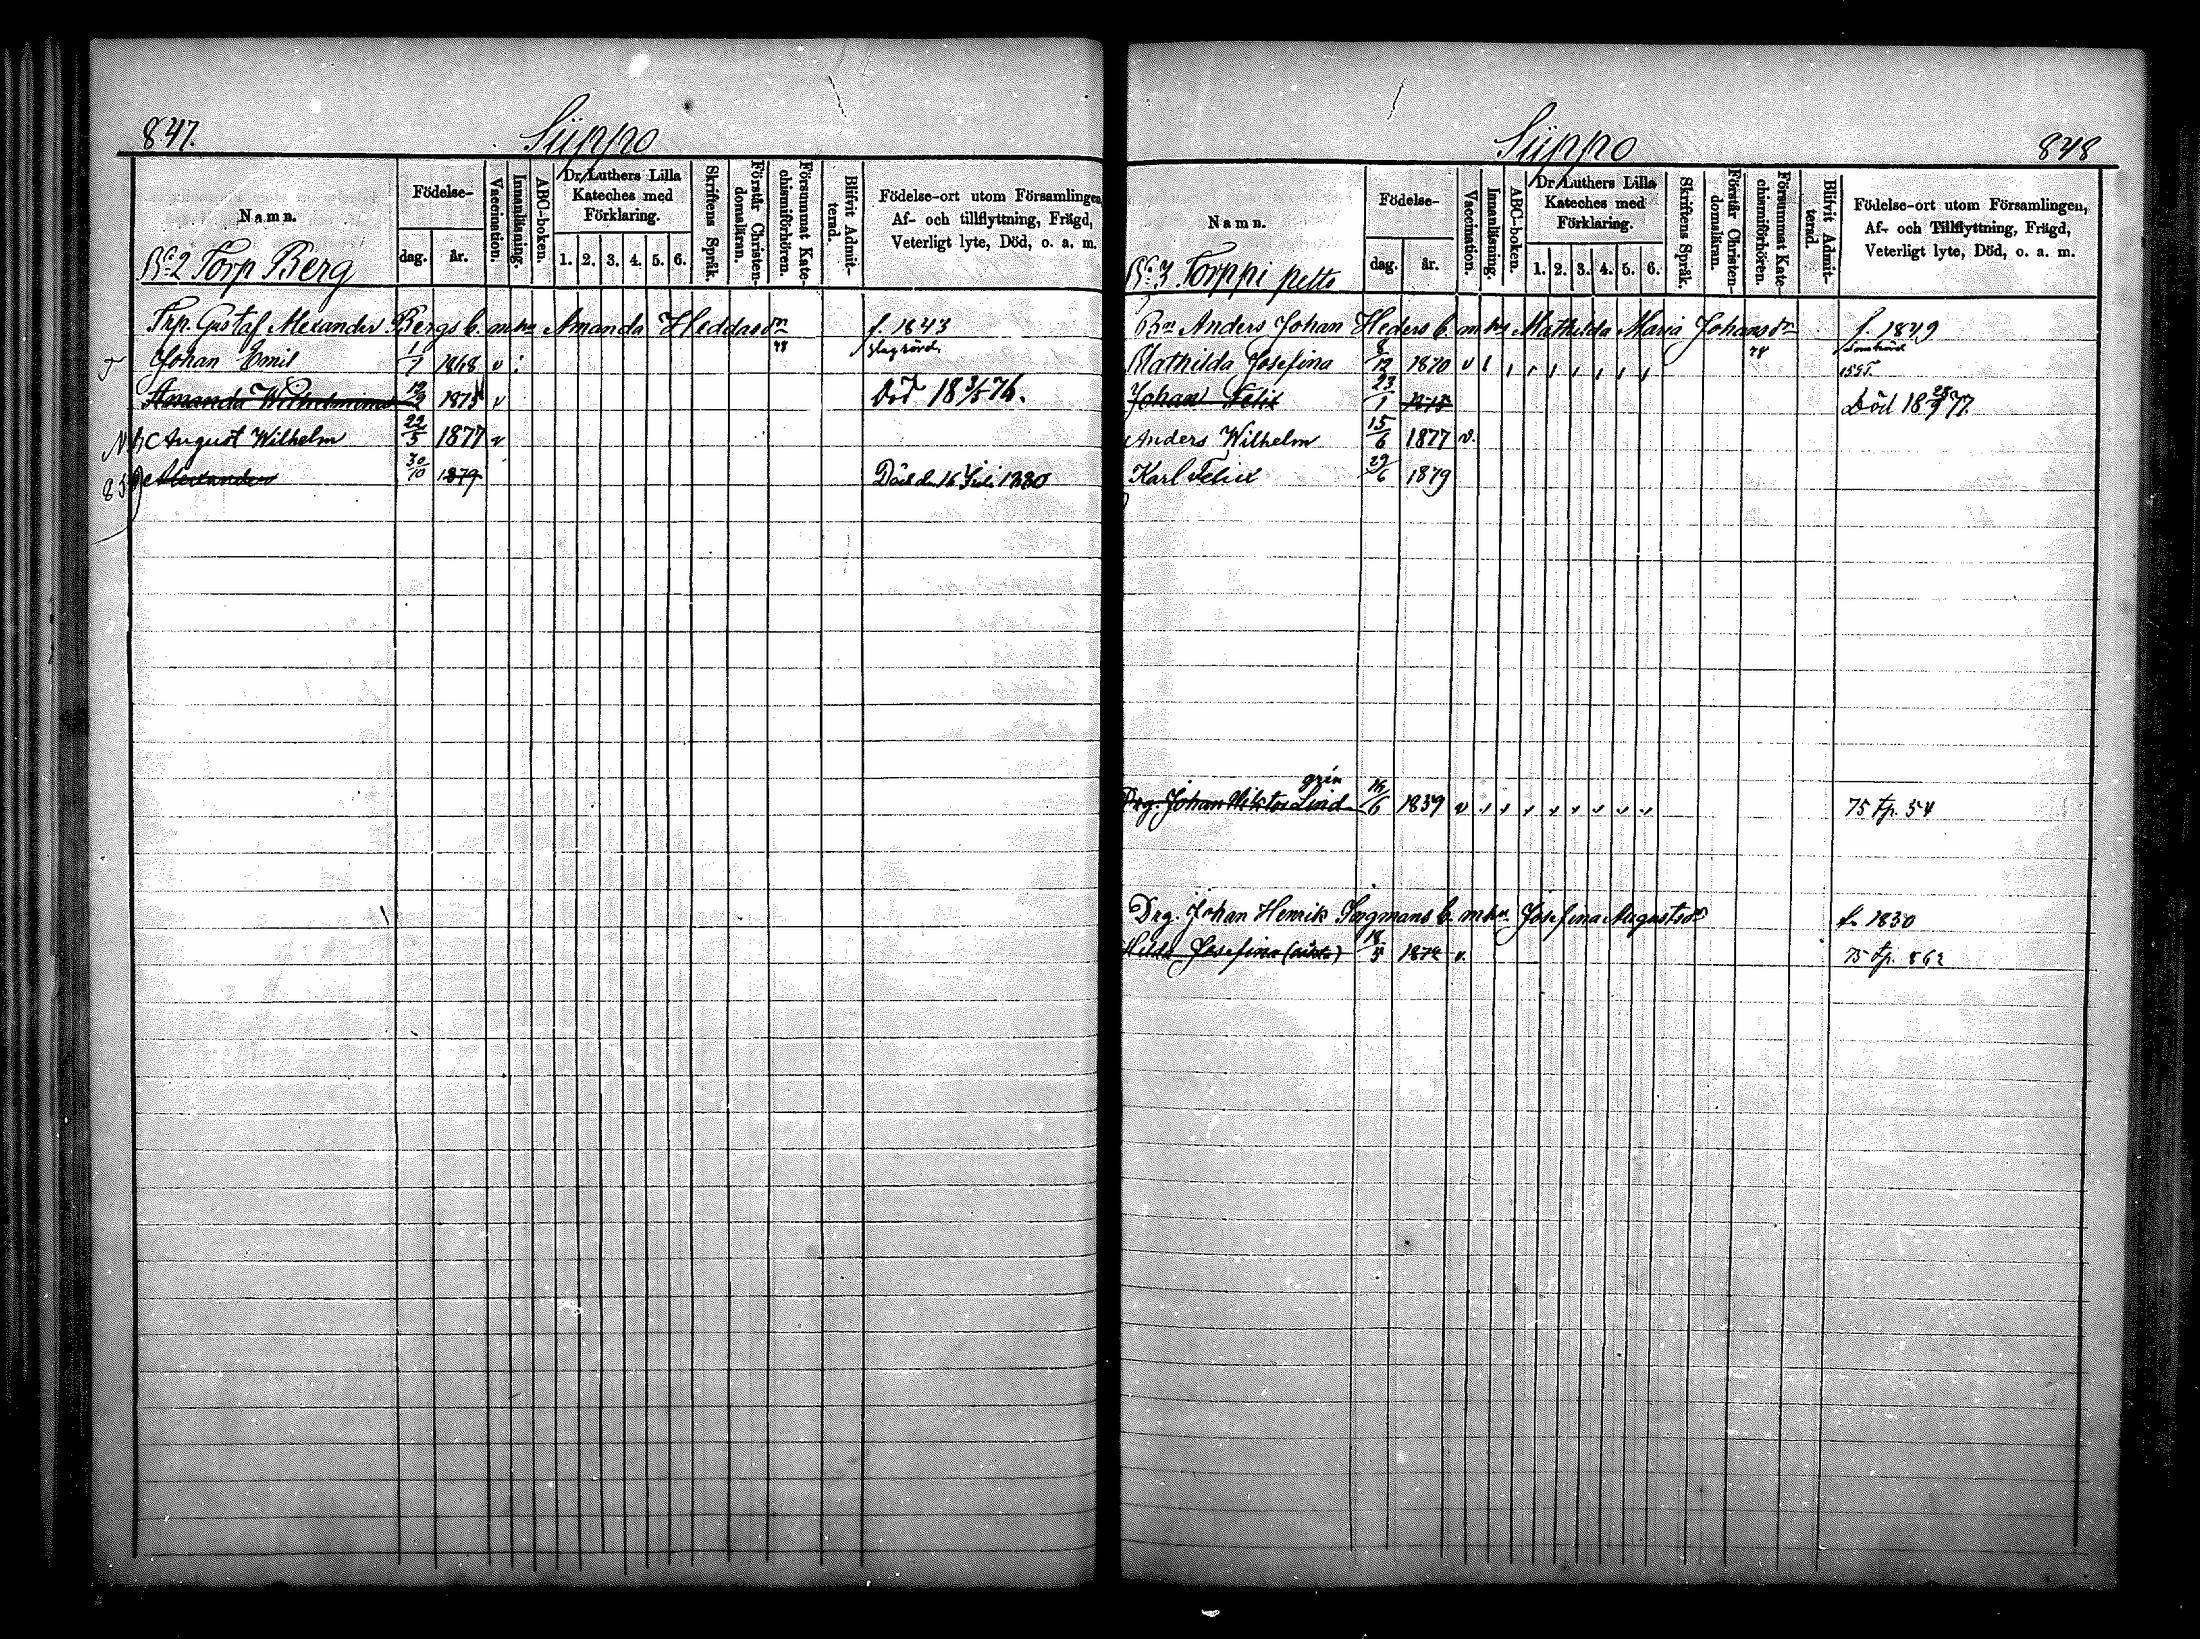 847.
Siippo
Namn.
Födelse-
dag.
år.
Vaccination.
Innanläsning.
ABC-boken.
Dr Luthers Lilla
Kateches med
Förklaring.
1. 2. 3. 4. 5. 6.
Skriftens Språk.
Förstår Christen-
domsläran.
Försummat Kate-
chismiförhören.
Blifvit Admit-
terad.
Födelse-ort utom Församlingen,
Af- och tillflyttning, Frägd,
Veterligt lyte, Död, o. a. m.
No 2 Torp Berg
Trp. Gustaf Alexander Bergs b. m hu Amanda Heddasdr f. 1843
Johan Emil 1/7 1868 v
Amanda Wilhelmina 1875 v Död 18 3/5 76.
August Wilhelm 22/5 1877 v
Alexander 30/10 1879 Död d. 16 1880
Siippo
848
Namn.
Födelse-
dag.
år.
Vaccination.
Innanläsning.
ABC-boken.
Dr Luthers Lilla
Kateches med
Förklaring.
1. 2. 3. 4. 5. 6.
Skriftens Språk.
Förstår Christen-
domsläran.
Försummat Kate-
chismiförhören.
Blifvit Admit-
terad.
Födelse-ort utom Församlingen,
Af- och Tillflyttning, Frägd,
Veterligt lyte, Död, o. a. m.
No 3 Torppi pelto
Anders Johan Heders b. m hu Mathilda Maria Johansdr f. 1849
78
Mathilda Josefina 8/12 1870 v
Johan Felix 23/1 1875 Död 18 77
Anders Wilhelm 15/6 1877 v.
Karl Felix 29/6 1879
grén
Drg. Johan Viktor Lind 16/6 1859 v 75 fp. 54
Drg. Johan Henrik b. m hu Josefina Augustsdr f. 1850
Hilda Josefina 18/5 1872 v. 75 fp. 862